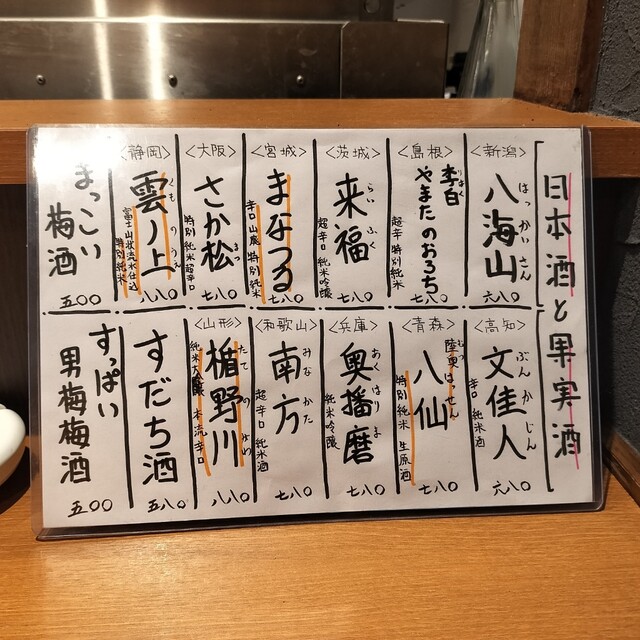 日本酒と果実酒
<新潟>
八海山
はっかいさん
六八〇
<島根>
李白
りはく
やまたのおろち
超辛口 特別純米
七八〇
<茨城>
来福
らいふく
超辛口 純米吟醸
七八〇
<宮城>
まなつる
辛口 山廃 特別純米
七八〇
<大阪>
さか松
まつ
特別 純米 超辛口
七八〇
<静岡>
雲ノ上
くものうえ
富士山伏流水仕込
特別純米
八八〇
まっこい
梅酒
五〇〇
<高知>
文佳人
ぶんかじん
辛口 純米酒
六八〇
<青森>
陸奥はっせん
むつ
八仙
特別純米 生原酒
七八〇
<兵庫>
奥播磨
おくはりま
純米吟醸
七八〇
<和歌山>
南方
みなかた
超辛口 純米酒
七八〇
<山形>
楯野川
たてのかわ
純米大吟醸 本流辛口
八八〇
すだち酒
五八〇
すっぱい
男梅梅酒
五〇〇